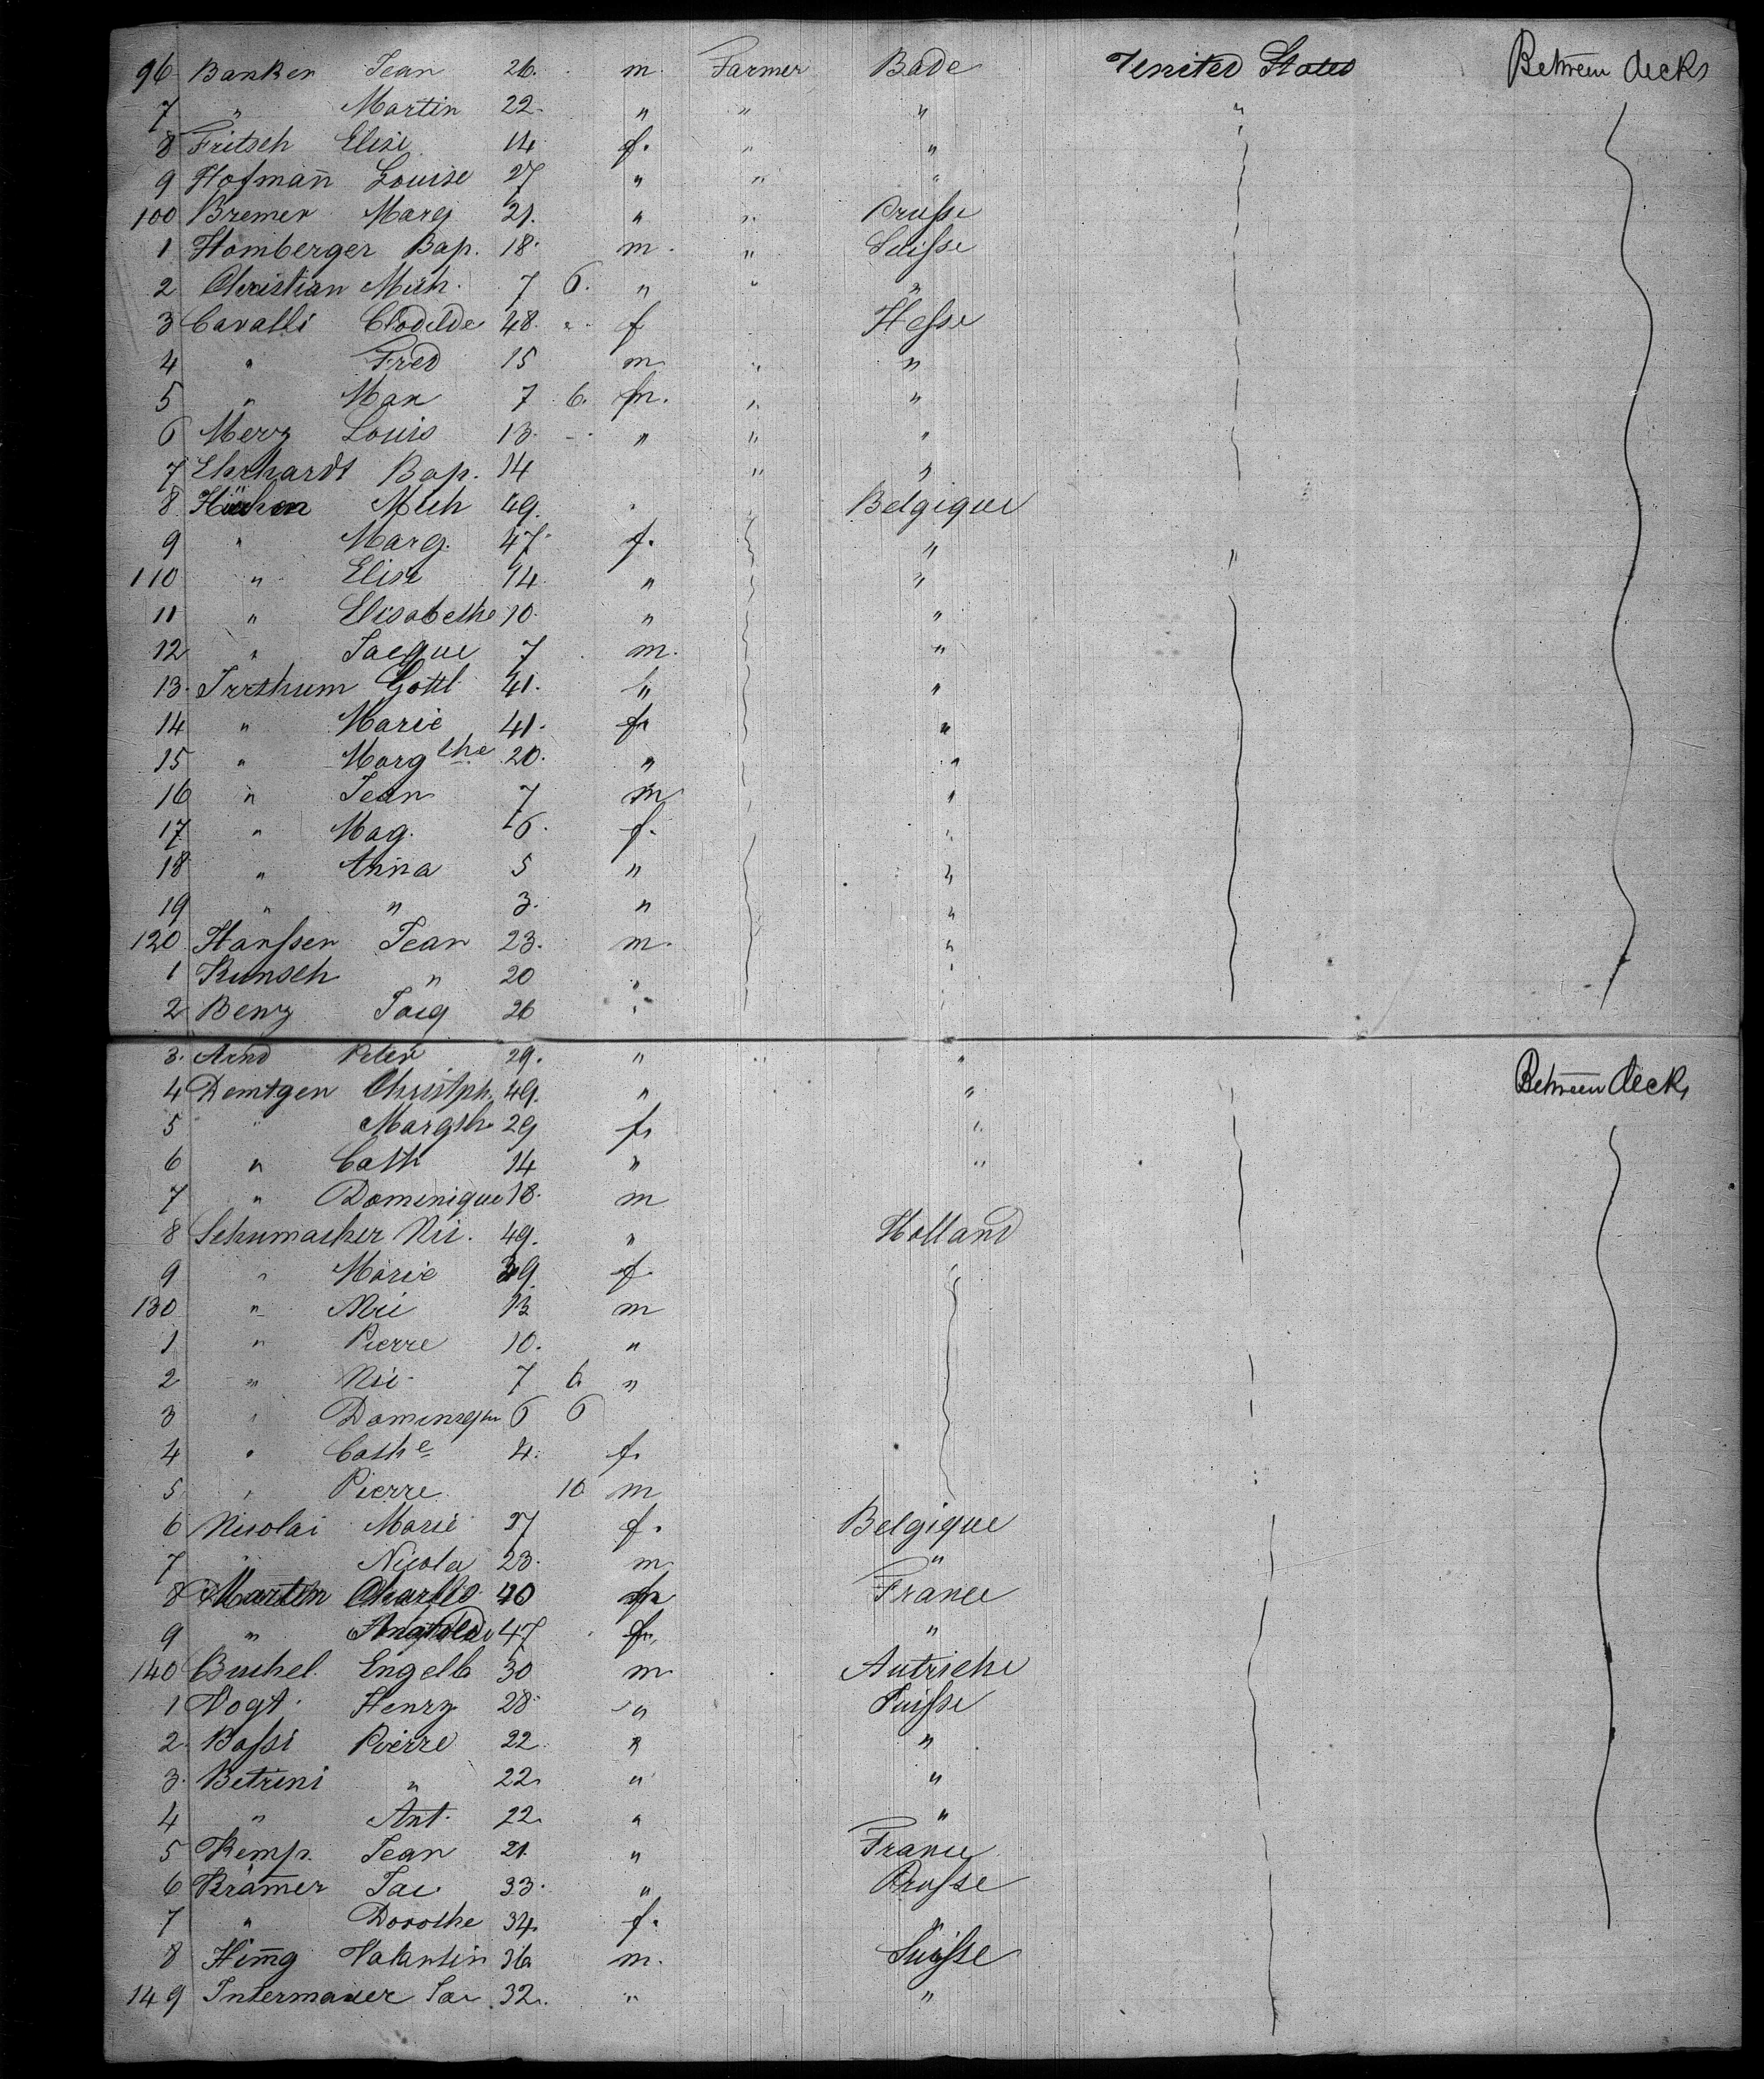 96 Banker Jean 26. m. Farmer Bade United States Between decks
7 " Martin 22. " " " "
8 Fritsch Elise 14 f. " "
9 Hofmañ Louise 27 " " "
100 Bremer Marg 21. " " Prusse
1 Homberger Bap. 18. m. " Suisse
2 Christian Mich. 7 6. " " "
3 Cavalli Clodilde 48. f Hesse
4 " Fred 15 m " "
5 " Max 7 6. m. " "
6 Merz Louis 13. " " "
7 Ehrhardt Bap. 14 " "
8 Mich 49. Belgique
9 " Marg. 47. f. " "
110 " Elise 14 " "
11 " Elisabethe 10. " "
12 " Jacque 7 m. "
13. Irrthum Gottl 41. " "
14 " Marie 41. f. "
15 " Marg the 20. " "
16 " Jean 7 m "
17 " Mag. 6. f. "
18 " Anna 5 " "
19 " " 3. " "
120 Hanssen Jean 23. m. "
1 Kunsch " 20 "
2 Benz Jacq 26 "
3. Arnd Peter 29. " " "
4 Demtgen Christph. 49. " " Between decks
5 " Margth 29 f. "
6 " Cath 14 " "
7 " Dominique 18. m
8 Schumacher Nic. 49. " Holland
9 " Marie 39. f.
130 " 13 m
1 " Pierre 10. "
2 " Nic. 7 6 "
3 " Dominique 6 6
4 " Cathe 4. f.
5 " Pierre 10 m
6 Nicolai Marie 27 f. Belgique
7 " Nicola 23. m "
8 Martin Charles 40 m France
9 " 47 f. "
140 Buchel Engelb 30 m Autriche
1 Vogt. Henry 28 " Suisse
2. Bassi Pierre 22 " "
3. Betrini " 22. " "
4 " Ant. 22. " "
5 Kemp. Jean 21. " France
6 Krämer Jac 33. " Prusse
7 " Dorothe 34. f. "
8 Him̄g Valantin 36 m. Suisse
149 Intermauer Jac 32. " "